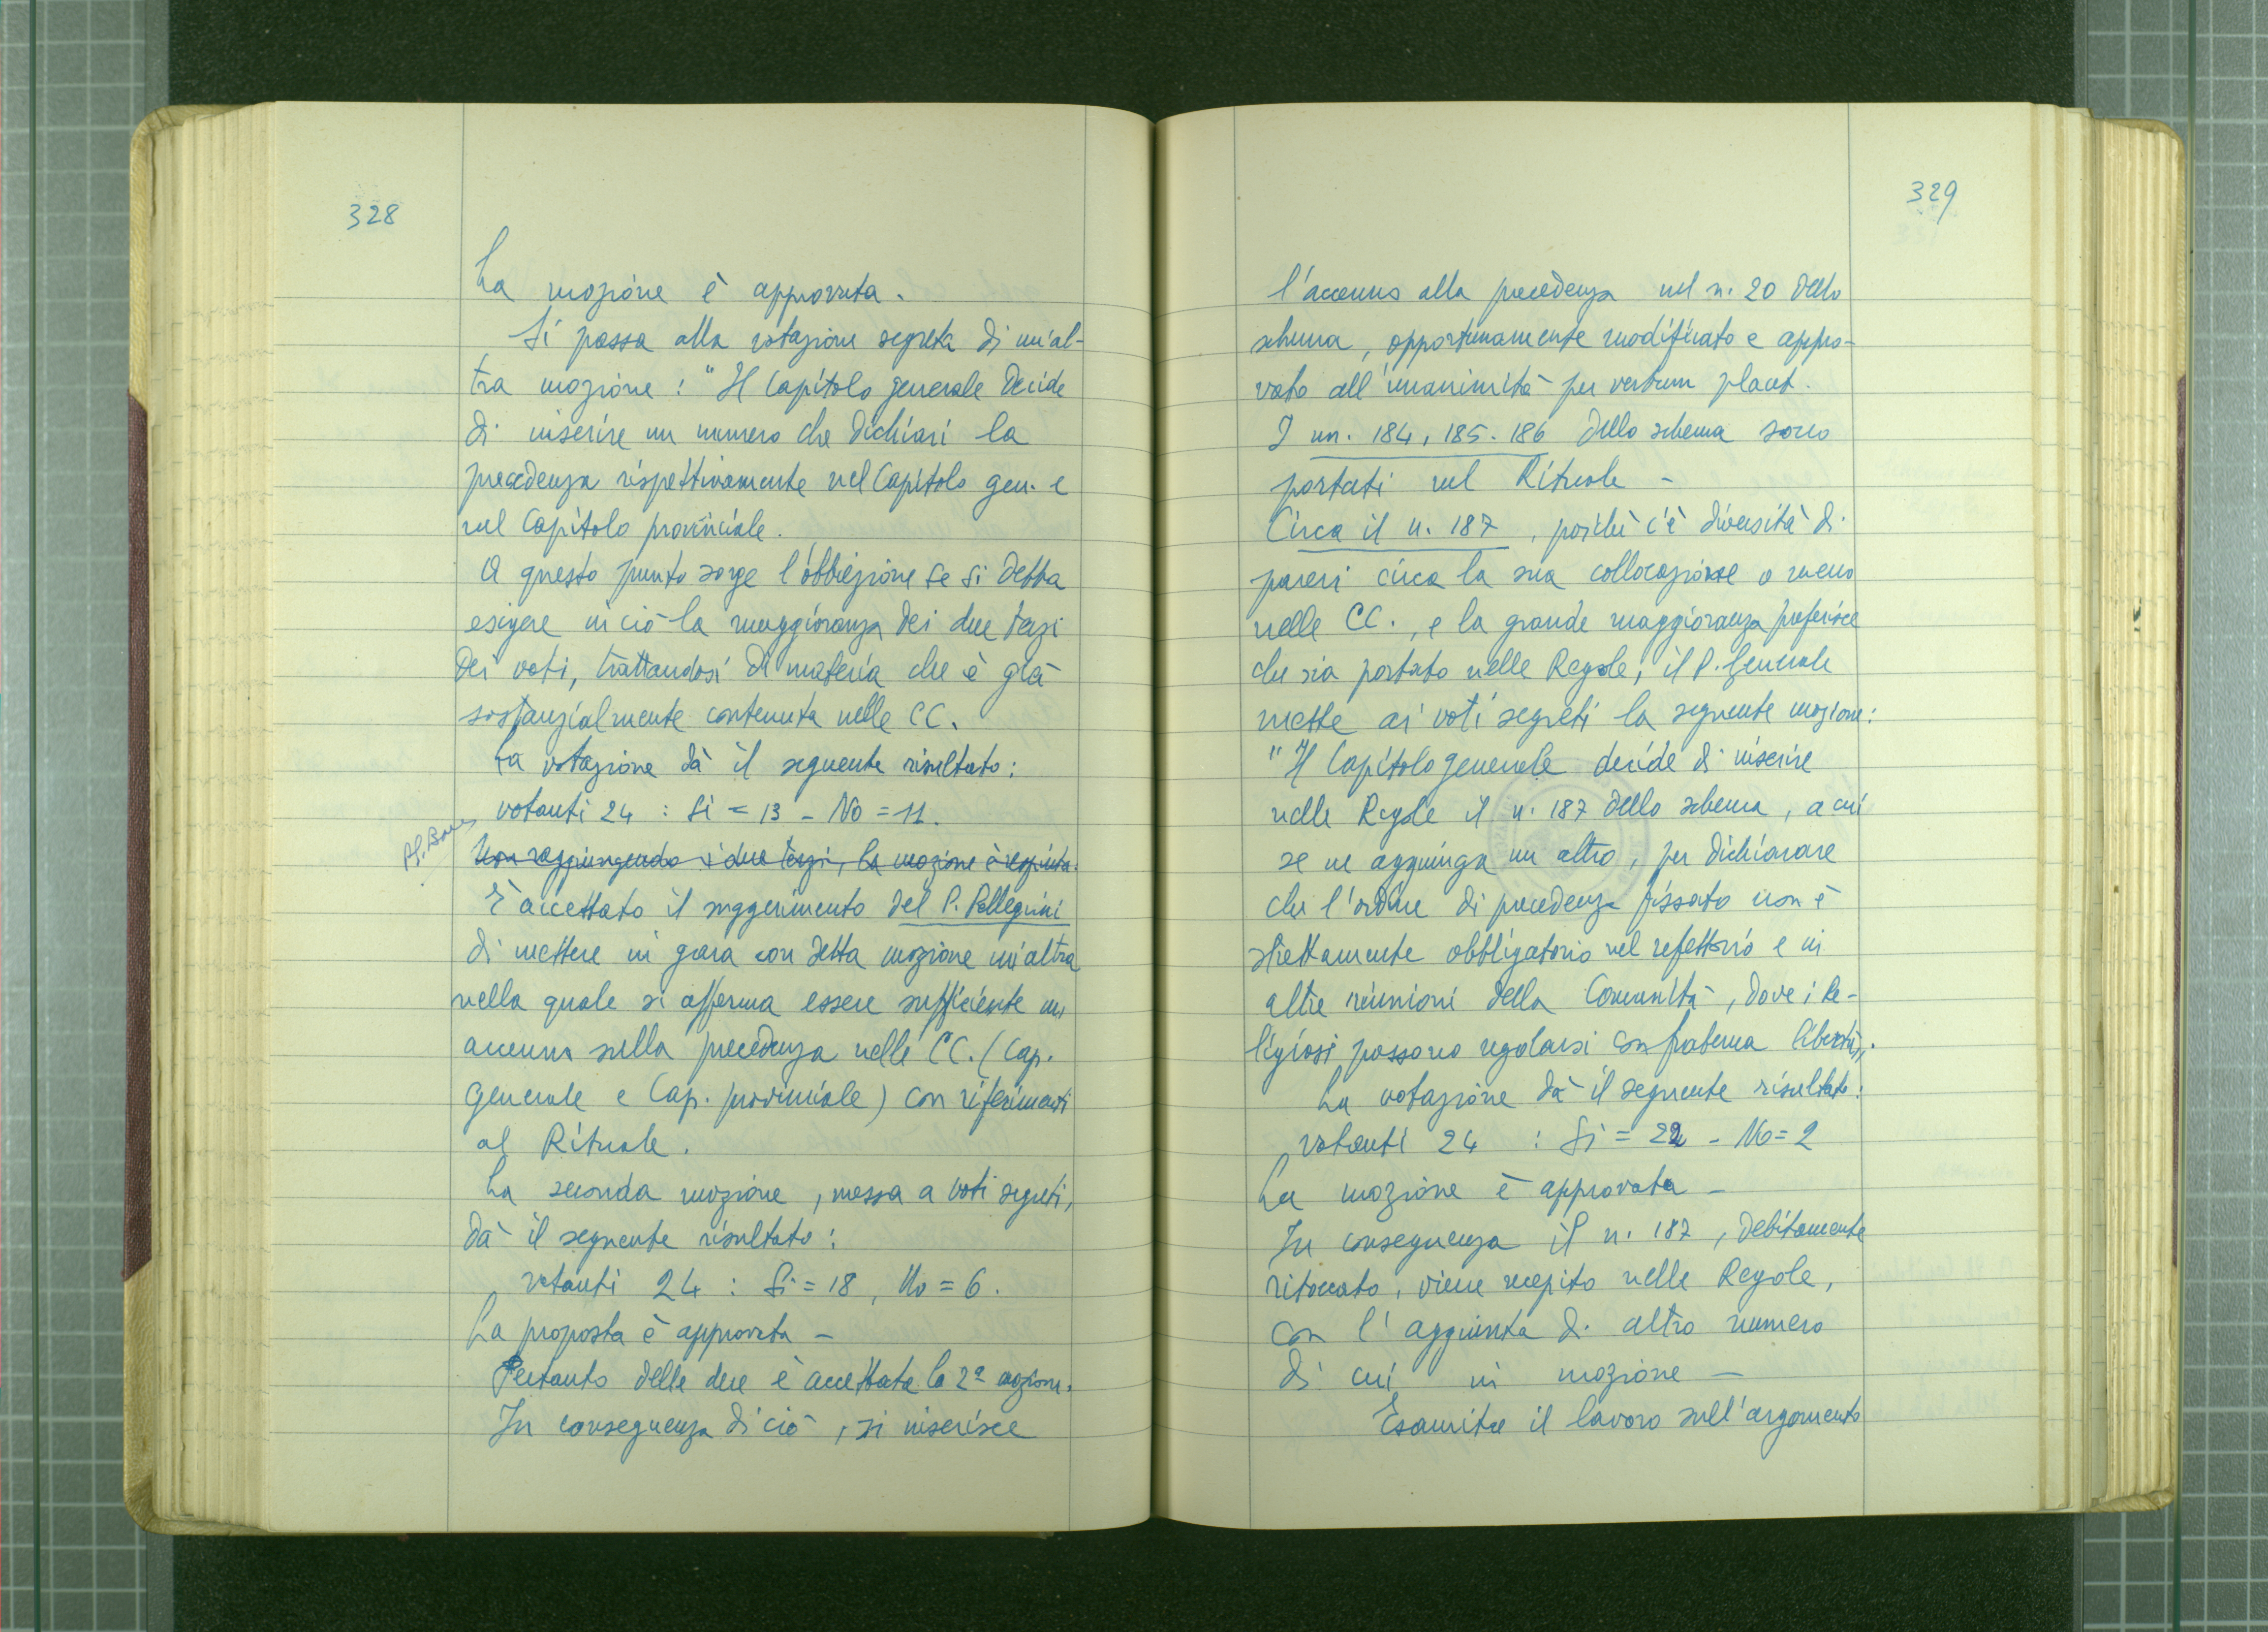 328
La mozione è approvata.
Si passa alla votazione segreta di un'al-
tra mozione: "Il Capitolo generale decide
di inserire un numero che dichiari la
precedenza rispettivamente nel Capitolo gen. e
nel Capitolo provinciale.
A questo punto sorge l'obbiezione se si debba
esigere in ciò la maggioranza dei due terzi
dei voti, trattandosi di materia che è già
sostanzialmente contenuta nelle CC.
La votazione dà il seguente risultato:
votanti 24 : Si = 13 - No = 11.
Non raggiungendo i due terzi, la mozione è respinta.
È accettato il suggerimento del P. Pellegrini
di mettere in gara con detta mozione un'altra
nella quale si afferma essere sufficiente un
accenno sulla precedenza nelle CC. (Cap.
generale e Cap. provinciale) con riferimenti
al Rituale.
La seconda mozione, messa a voti segreti,
dà il seguente risultato:
votanti 24 : Si = 18, No = 6.
La proposta è approvata -
Pertanto delle due è accettata la 2ª mozione.
In conseguenza di ciò, si inserisce
329
l'accenno alla precedenza nel n. 20 dello
schema, opportunamente modificato e appro-
vato all'unanimità per verbum placet.
I nn. 184, 185. 186 dello schema sono
portati nel Rituale -
Circa il n. 187, poichè c'è diversità di
pareri circa la sua collocazione o meno
nelle CC., e la grande maggioranza preferisce
che sia portato nelle Regole, il P. Generale
mette ai voti segreti la seguente mozione:
"Il Capitolo generale decide di inserire
nelle Regole il n. 187 dello schema, a cui
se ne aggiunga un altro, per dichiarare
che l'ordine di precedenza fissato non è
strettamente obbligatorio nel refettorio e in
altre riunioni della Comunità, dove i Re-
ligiosi possono regolarsi con fraterna libertà".
La votazione dà il seguente risultato:
votanti 24 : Si = 22 - No = 2
La mozione è approvata -
In conseguenza il n. 187, debitamente
ritoccato, viene recepito nelle Regole,
con l'aggiunta di altro numero
di cui in mozione -
Esaurito il lavoro sull'argomento